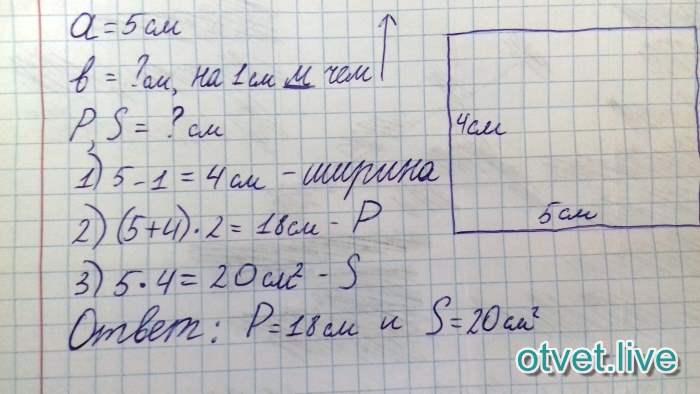 a = 5 см
в = ?см, на 1см м чем
P, S = ? см
1) 5 - 1 = 4 см - ширина
2) (5+4) · 2 = 18 см - P
3) 5 · 4 = 20 см² - S
Ответ: P = 18 см и S = 20 см²
4 см
5 см
otvet.live